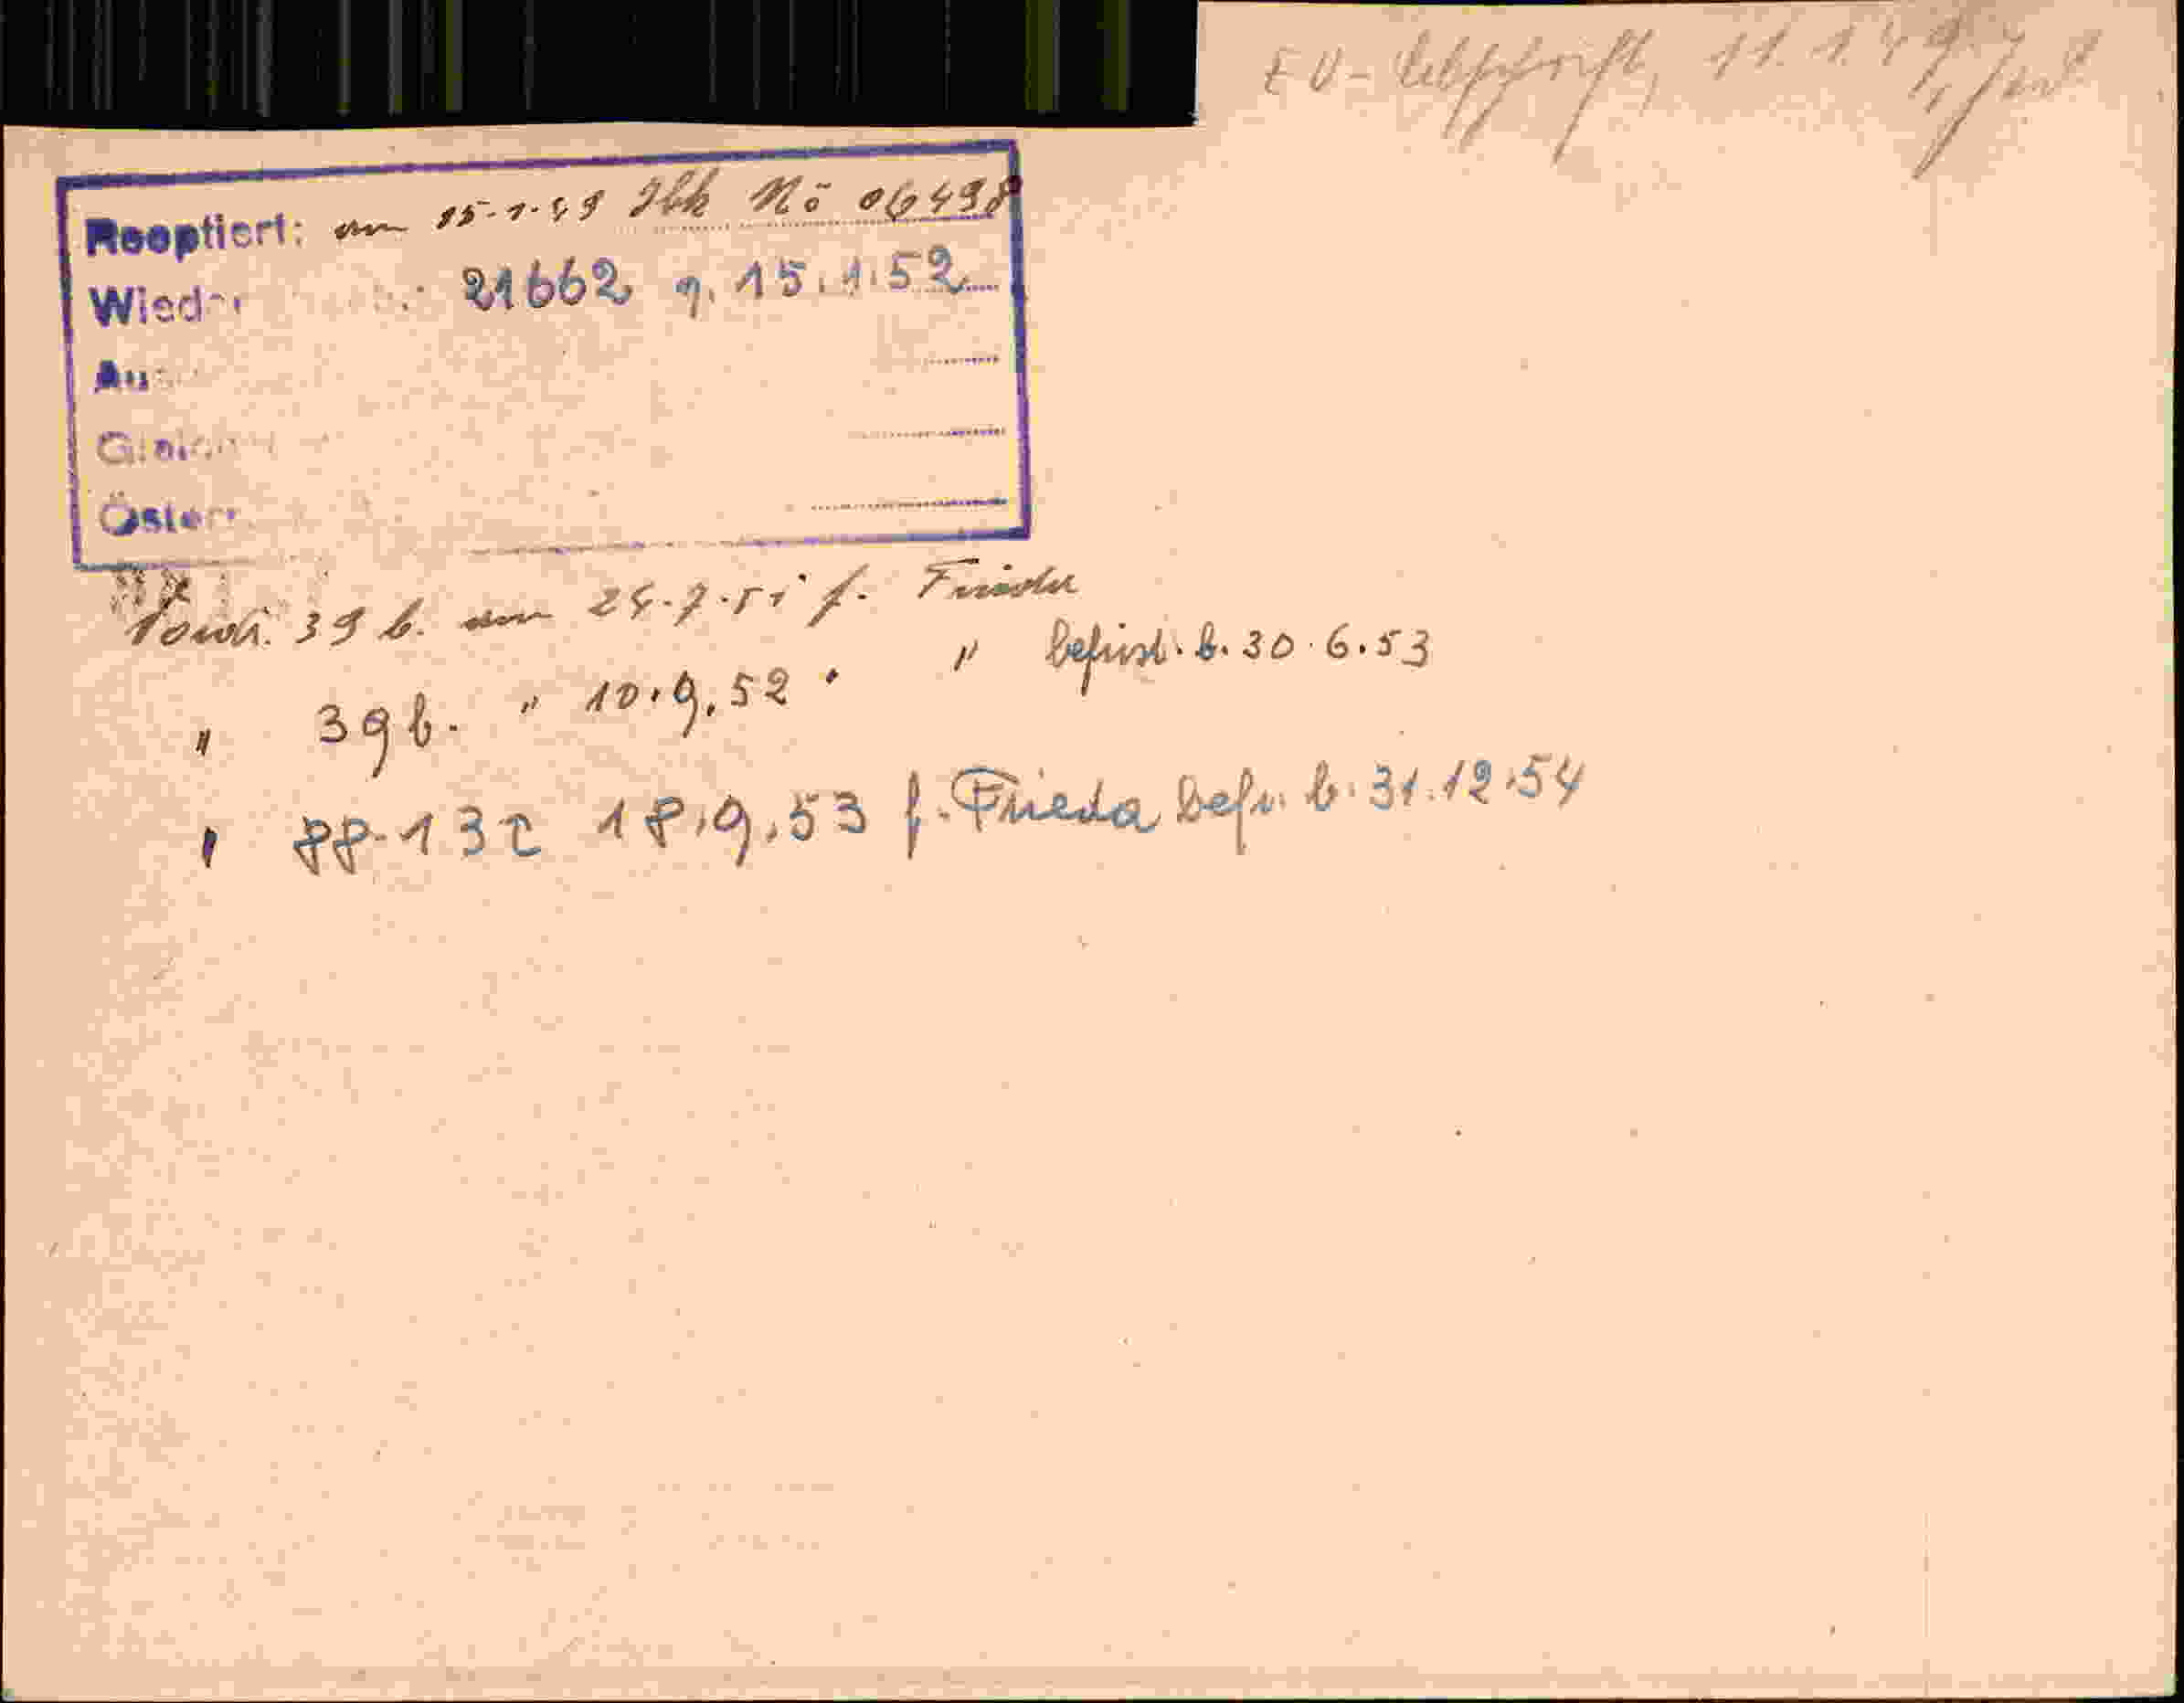 EV-Abschrift, 11.1.49
Reoptiert: am 15-1-49 Ibk Nö 06498
21662 g. 15.1.52
39 b. am 24.7.51 f. Frieda
" 39 b. " 10.9.52 " " befrist. b. 30.6.53
" 88-132 18.9.53 f. Frieda befr. b. 31.12.54